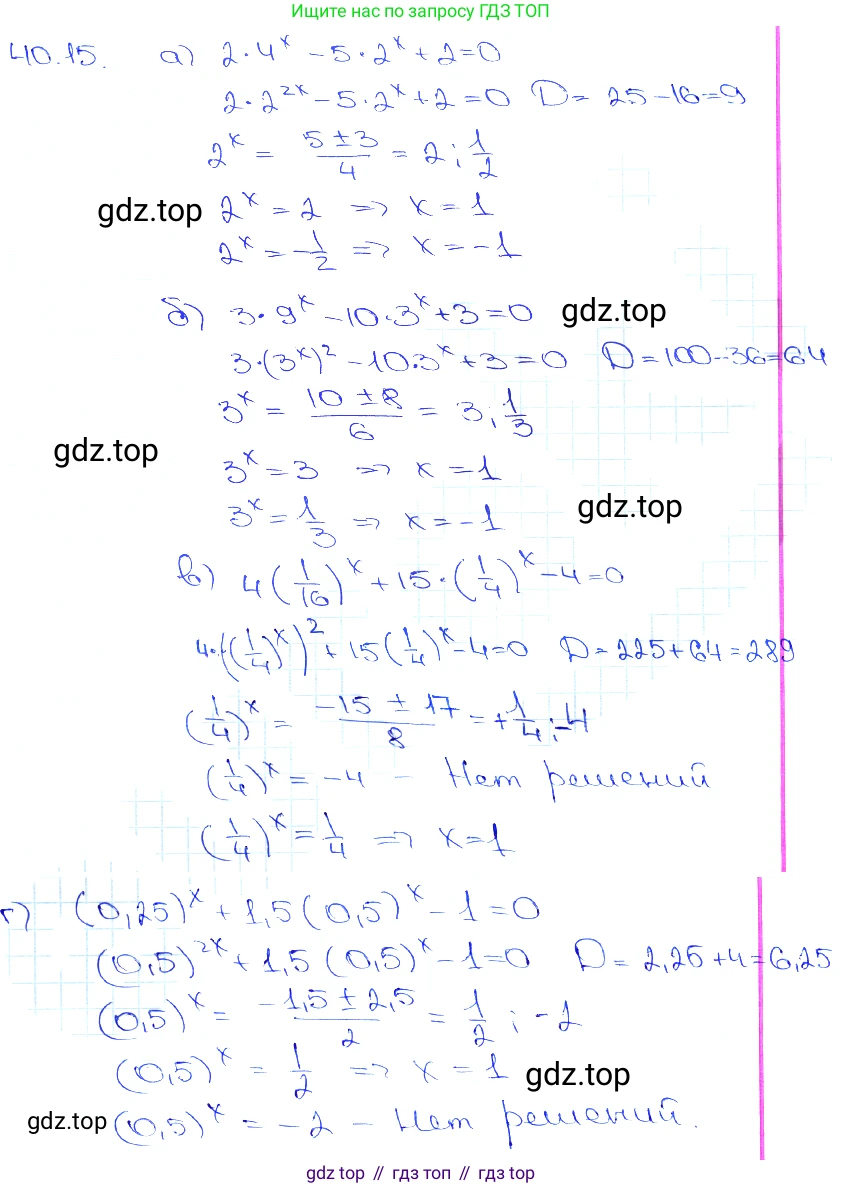 Ищите нас по запросу ГДЗ ТОП
40.15. а) 2·4^x − 5·2^x + 2 = 0
2·2^{2x} − 5·2^x + 2 = 0 D = 25 − 16 = 9
2^x = (5 ± 3)/4 = 2; 1/2
gdz.top 2^x = 2 => x = 1
2^x = −1/2 => x = −1
б) 3·9^x − 10·3^x + 3 = 0 gdz.top
3·(3^x)^2 − 10·3^x + 3 = 0 D = 100 − 36 = 64
3^x = (10 ± 8)/6 = 3; 1/3
gdz.top 3^x = 3 => x = 1
3^x = 1/3 => x = −1 gdz.top
в) 4(1/16)^x + 15·(1/4)^x − 4 = 0
4·((1/4)^x)^2 + 15(1/4)^x − 4 = 0 D = 225 + 64 = 289
(1/4)^x = (−15 ± 17)/8 = +1/4; −4
(1/4)^x = −4 − Нет решений
(1/4)^x = 1/4 => x = 1
г) (0,25)^x + 1,5(0,5)^x − 1 = 0
(0,5)^{2x} + 1,5(0,5)^x − 1 = 0 D = 2,25 + 4 = 6,25
(0,5)^x = (−1,5 ± 2,5)/2 = 1/2; −2
(0,5)^x = 1/2 => x = 1 gdz.top
gdz.top (0,5)^x = −2 − Нет решений.
gdz top // гдз топ // gdz top